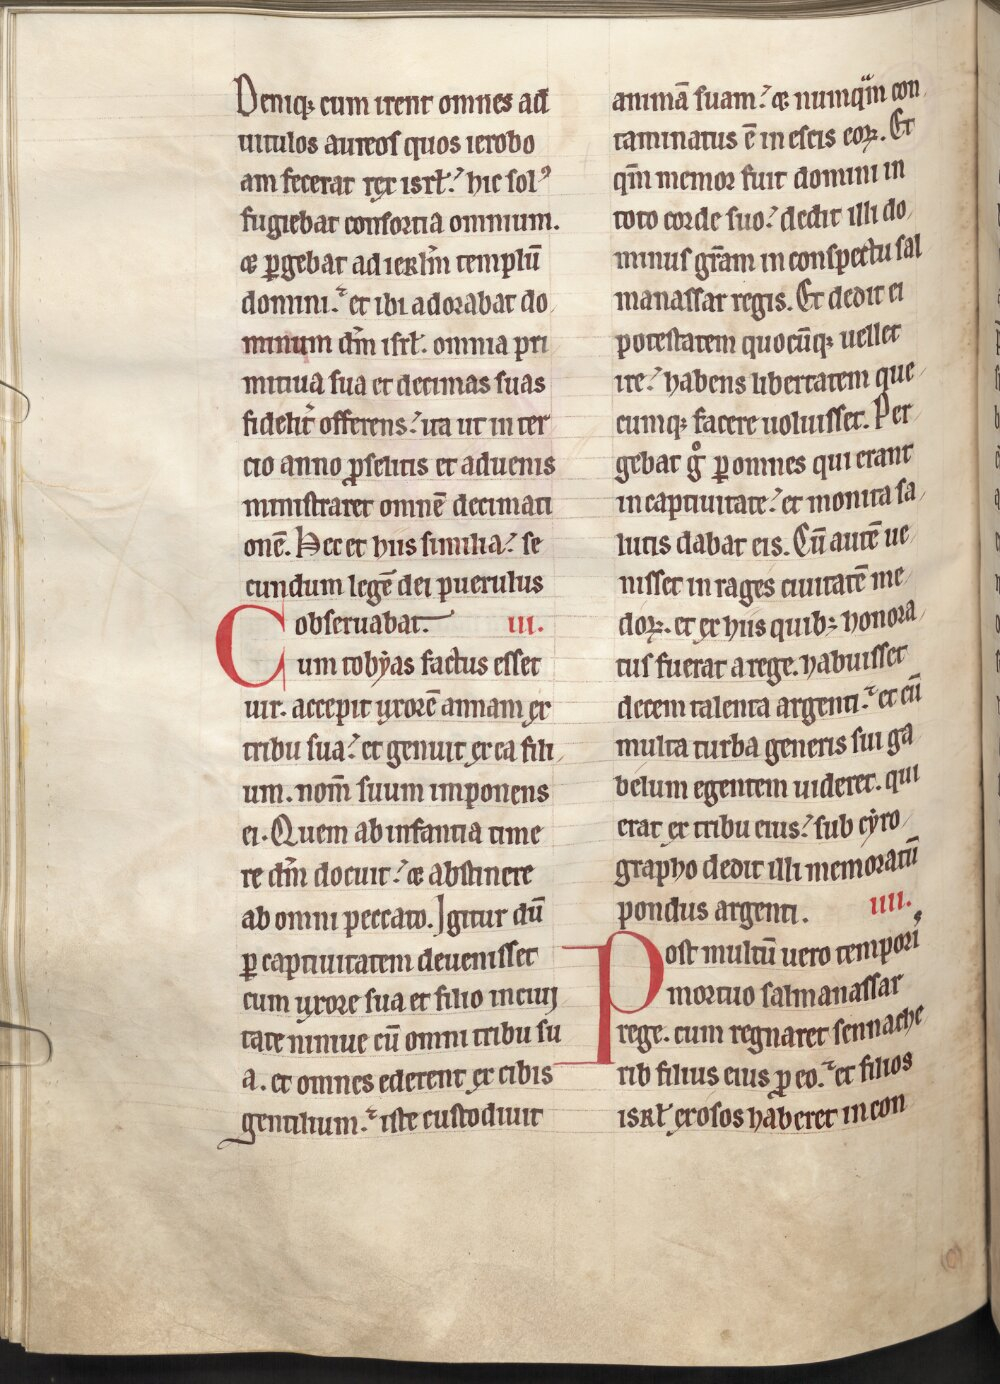 Deniq; cum irent omnes ad
uitulos aureos quos ierobo
am fecerat rex isrł. hic sol᾿
fugiebat consortia omnium.
& ꝑgebat ad ierłm templū
domini. et ibi adorabat do
minum dm̄ isrł. omnia pri
mitiua sua et decimas suas
fidelit̄ offerens. ita ut in ter
cio anno ꝓselitis et aduenis
ministraret omnē decimati
onē. Hec et hiis similia. se
cundum legē dei puerulus
obseruabat. III.
Cum tobyas factus esset
uir. accepit uxorē annam ex
tribu sua. et genuit ex ea fili
um. nom̄ suum imponens
ei. Quem ab infantia time
re dm̄ docuit. & abstinere
ab omni peccato. Igitur dū
ꝑ captiuitatem deuenisset
cum uxore sua et filio in ciui
tate niniue cū omni tribu su
a. et omnes ederent ex cibis
gentilium. iste custodiuit
animā suam. & numqᵃm con
taminatus ē in escis eoꝝ. Et
qm̄ memor fuit domini in
toto corde suo. dedit illi do
minus gr̄am in conspectu sal
manassar regis. Et dedit ei
potestatem quocūq; uellet
ire. habens libertatem que
cumq; facere uoluisset. Per
gebat gͦ ꝑ omnes qui erant
in captiuitate. et monita sa
lutis dabat eis. Cū autē ue
nisset in rages ciuitatē me
doꝝ. et ex hiis quib; honora
tus fuerat a rege. habuisset
decem talenta argenti. et cū
multa turba generis sui ga
belum egentem uideret. qui
erat ex tribu eius. sub cyro
grapho dedit illi memoratū
pondus argenti. IIII.
Post multū uero tempori᾿
mortuo salmanassar
rege. cum regnaret sennache
rib filius eius ꝑ eo. et filios
isrł exosos haberet in con